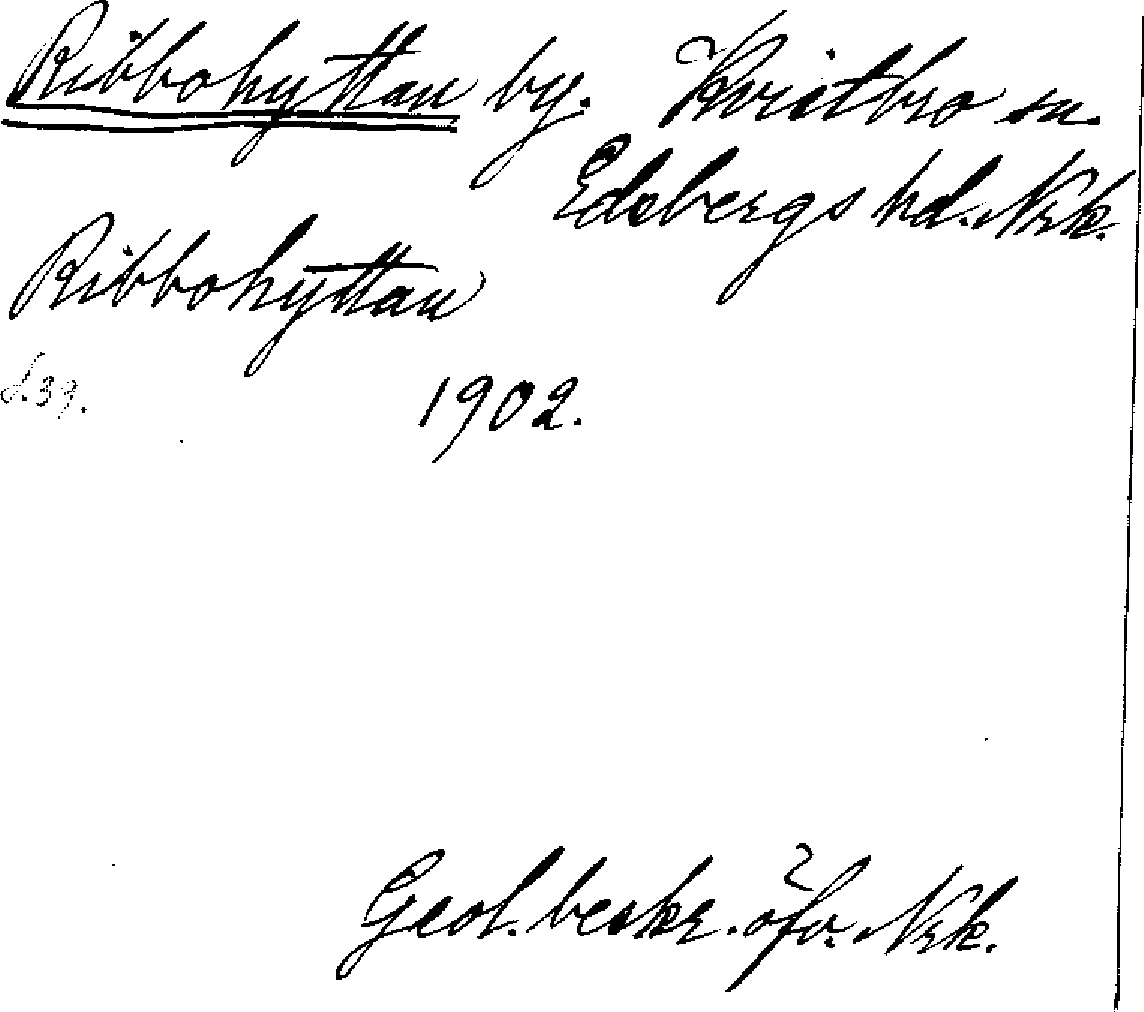 Ribbohyttan by. Kvistbro sn.
Edsbergs hd. Nrk.
Ribbohyttan
s. 39.
1902.
Geol. beskr. öfv. Nrk.